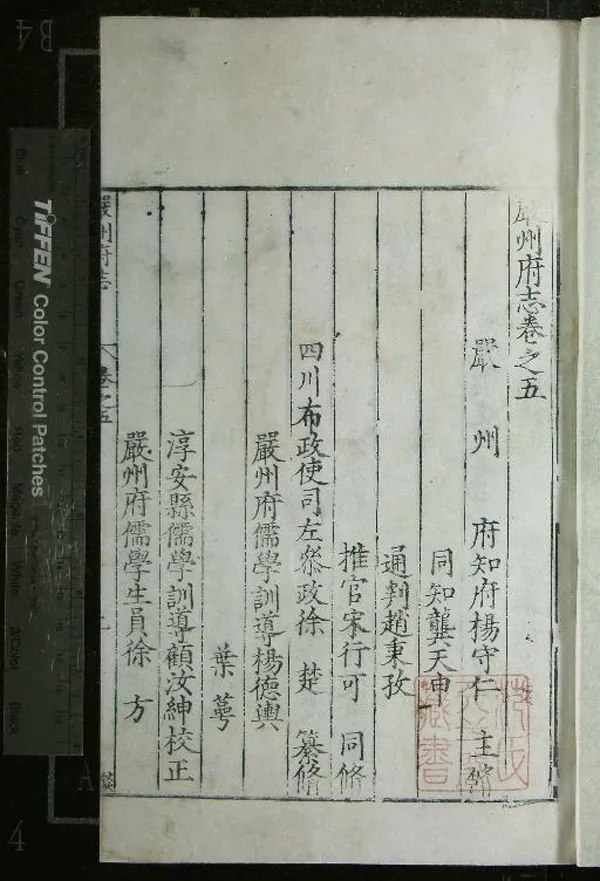 嚴州府志卷之五
嚴州府知府楊守仁主修
同知龔天申
通判趙秉孜
推官宋行可同修
四川布政使司左叅政徐楚纂脩
嚴州府儒學訓導楊德輿
葉蕚
淳安縣儒學訓導顧汝紳校正
嚴州府儒學生員徐方
嚴州府志
卷之五
藏書
TIFFEN Color Control Patches
Blue
Cyan
Green
Yellow
Red
Magenta
White
3/Color
Black
B4
A
4